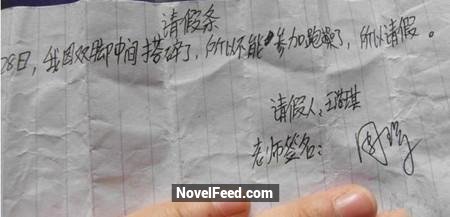 请假条
28日,我因双脚中间搭碎了,所以不能参加跑操了,所以请假。
请假人:王
老师签名:周
NovelFeed.com